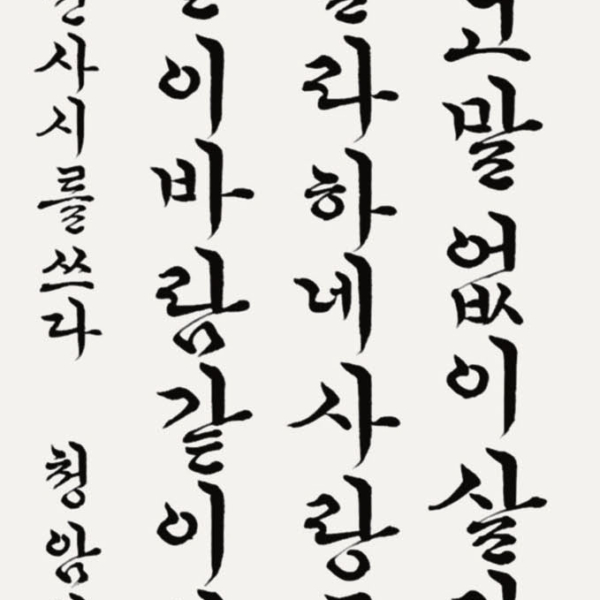 고말없이살
라하네사랑
이바람같이
사시를쓰다 청암